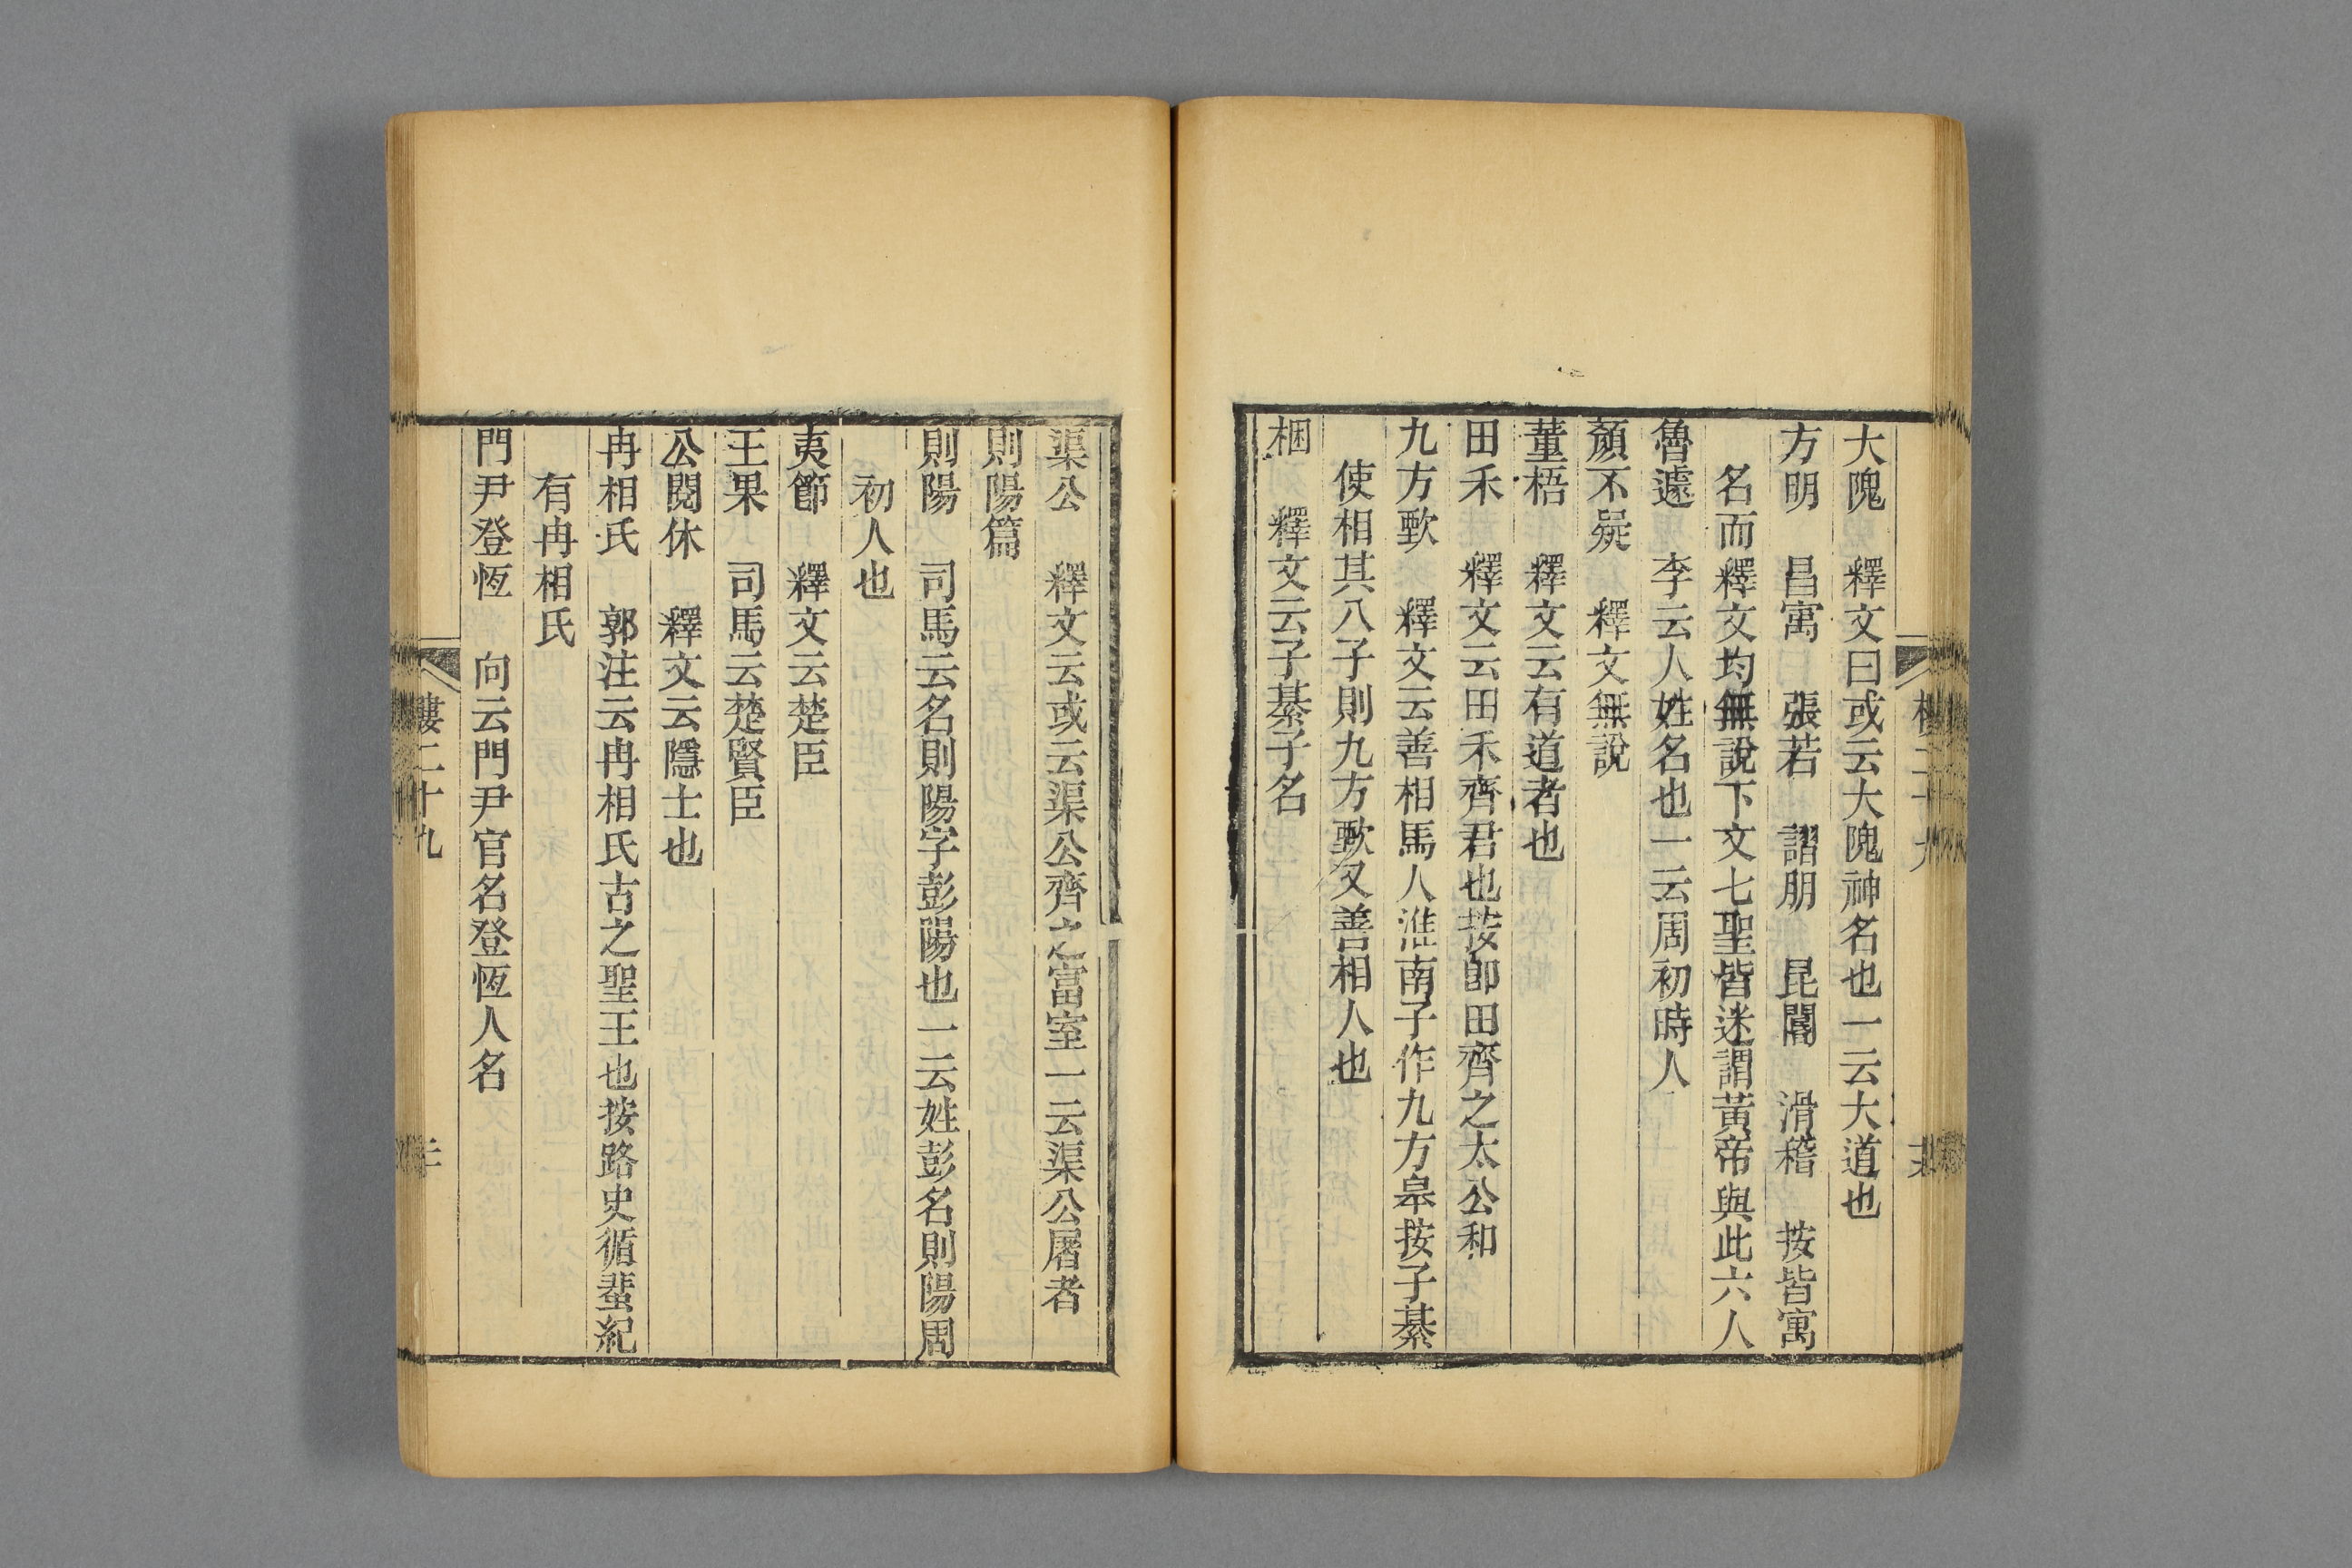 大隗　釋文曰或云大隗神名也一云大道也
方明　昌寓　張若　謵朋　昆閽　滑稽　按皆寓
名而釋文均無說下文七聖皆迷謂黃帝與此六人
魯遽　李云人姓名也一云周初時人
顏不疑　釋文無說
董梧　釋文云有道者也
田禾　釋文云田禾齊君也按卽田齊之太公和
九方歅　釋文云善相馬人淮南子作九方皋按子綦
使相其八子則九方歅又善相人也
梱　釋文云子綦子名
渠公　釋文云或云渠公齊之富室一云渠公屠者
則陽篇
則陽　司馬云名則陽字彭陽也一云姓彭名則陽周
初人也
夷節　釋文云楚臣
王果　司馬云楚賢臣
公閱休　釋文云隱士也
冉相氏　郭注云冉相氏古之聖王也按路史循蜚紀
有冉相氏
門尹登恆　向云門尹官名登恆人名
樓二十九